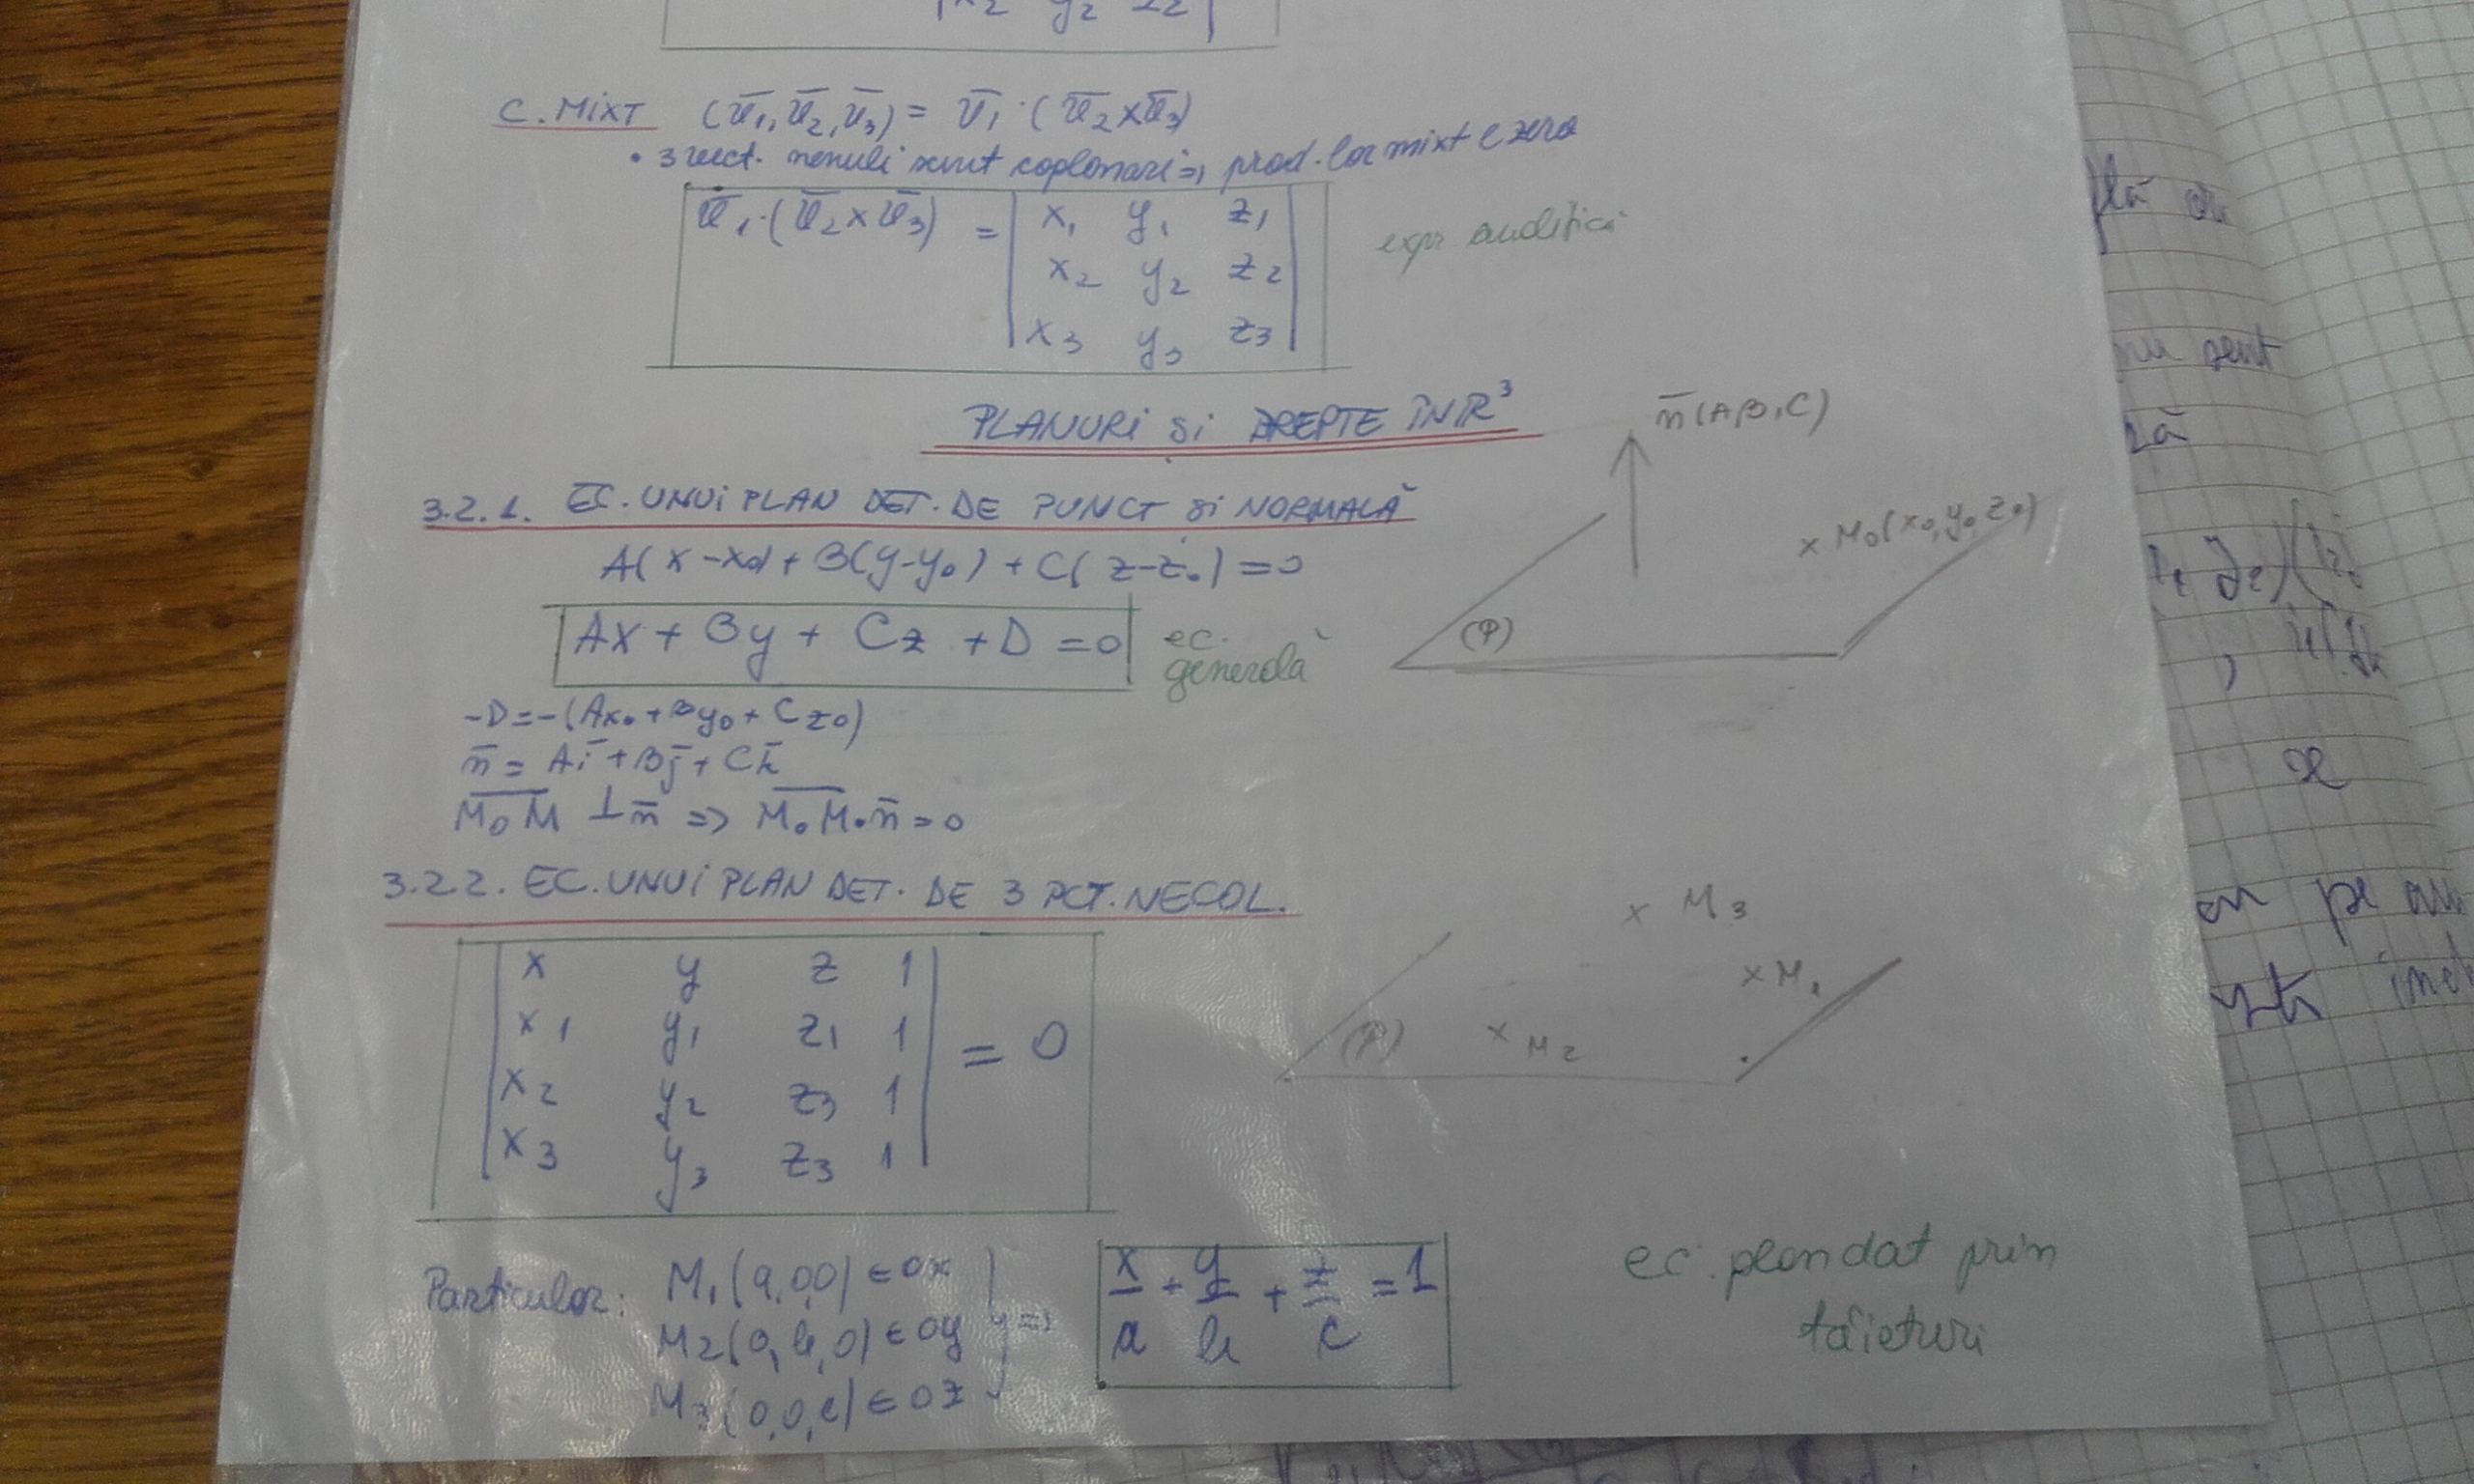 x₂ y₂ z₂
C. MIXT (v̄₁, v̄₂, v̄₃) = v̄₁ · (v̄₂ x v̄₃)
• 3 vect. nenuli sunt coplanari => prod. lor mixt e zero
v̄₁ · (v̄₂ x v̄₃) = | x₁ y₁ z₁ |
| x₂ y₂ z₂ |
| x₃ y₃ z₃ |
expr. analitică
PLANURI și DREPTE ÎN R³
3.2.1. EC. UNUI PLAN DET. DE PUNCT și NORMALĂ
n̄ (A,B,C)
x M₀(x₀, y₀, z₀)
(P)
A(x-x₀) + B(y-y₀) + C(z-z₀) = 0
Ax + By + Cz + D = 0 ec. generală
-D = -(Ax₀ + By₀ + Cz₀)
n̄ = Aī + Bj̄ + Ck̄
M₀M ⊥ n̄ => M₀M · n̄ = 0
3.2.2. EC. UNUI PLAN DET. DE 3 PCT. NECOL.
| x y z 1 |
| x₁ y₁ z₁ 1 |
| x₂ y₂ z₃ 1 | = 0
| x₃ y₃ z₃ 1 |
x M₃
x M₁
x M₂
(P)
Particular: M₁(a,0,0) ∈ OX
M₂(0,b,0) ∈ OY
M₃(0,0,c) ∈ OZ
} => x/a + y/b + z/c = 1
ec. plan dat prin
tăieturi
nu sunt